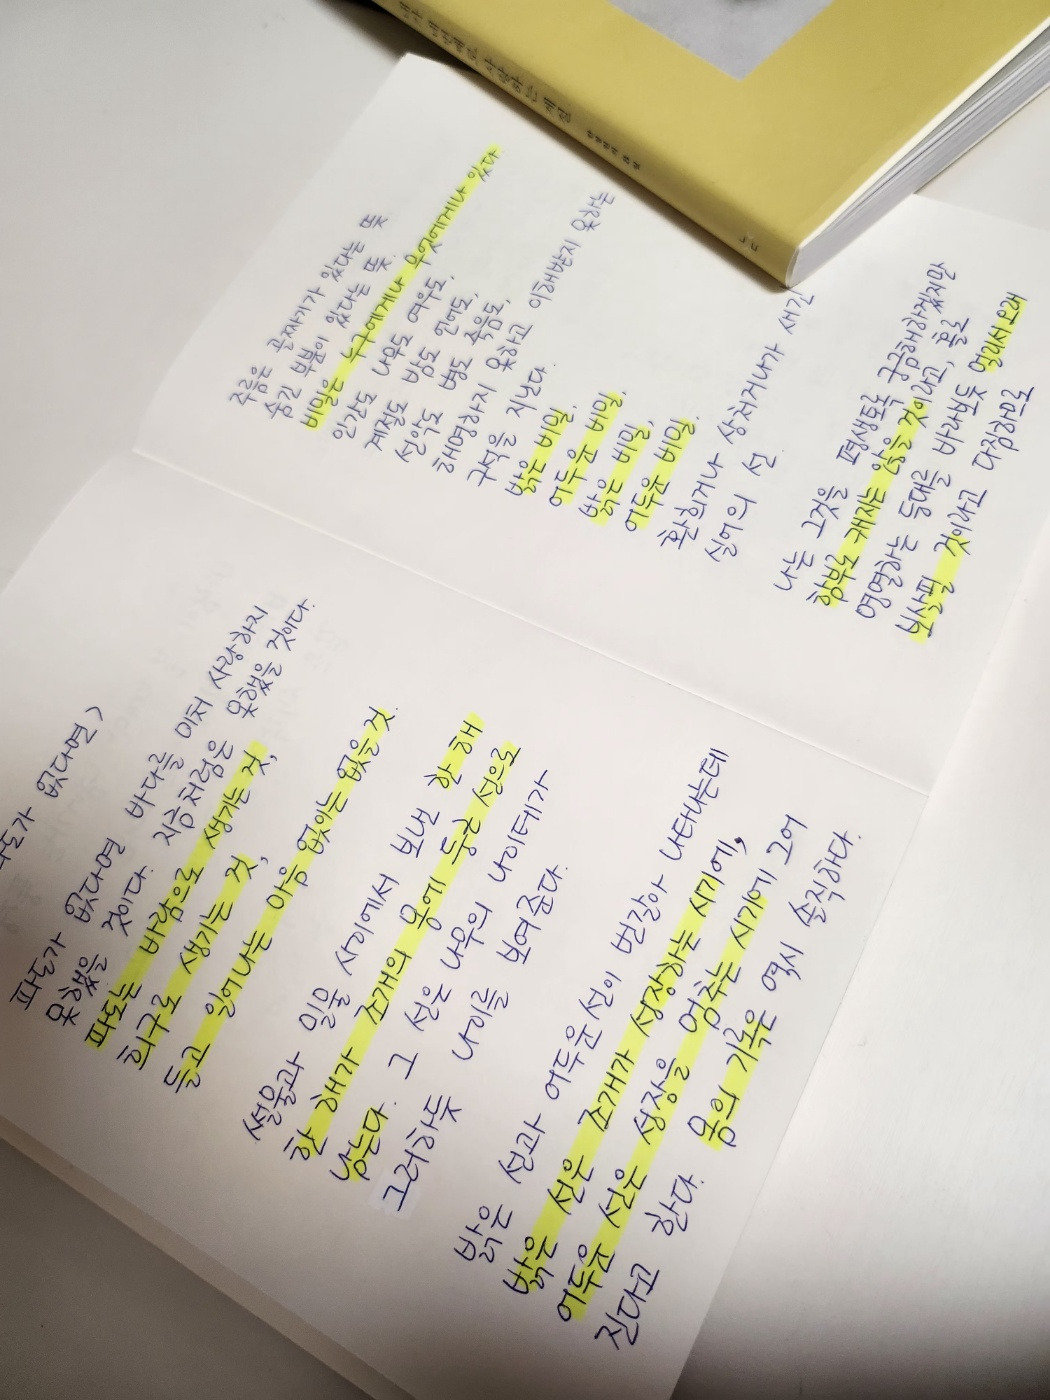 파도가 없다면 >
파도가 없다면 바다를 미처 사랑하지
못했을 것이다. 지금처럼은 못했을 것이다.
파도는 바람으로 생기는 것,
희구로 생기는 것,
들고 일어나는 마음 없이는 없을 것.
썰물과 밀물 사이에서 보낸 한 해
한 해가 조개의 몸에 둥근 선으로
남는다. 그 선은 나무의 나이테가
그러하듯 나이를 보여준다.
밝은 선과 어두운 선이 번갈아 나타나는데
밝은 선은 조개가 성장하는 시기에,
어두운 선은 성장을 멈추는 시기에 그어
진다고 한다. 몸의 기록은 역시 솔직하다.
주름은 그림자가 있다는 뜻
숨긴 부분이 있다는 뜻.
비밀은 누구에게나 무엇에게나 있다
인간도 나무도 여우도,
계절도 밤도 언어도,
선악도 병도 죽음도,
해명하지 못하고 이해받지 못하는
구석을 지닌다.
밝은 비밀,
어두운 비밀,
밝은 비밀,
어두운 비밀.
환희거나 상처거나가 새긴
실어의 선
나는 그것을 평생토록 궁금해하겠지만
함부로 캐지는 않을 것이라고, 홀로
명멸하는 등대를 바라보듯 멀리서 오래
보살필 것이라고 다짐하므로